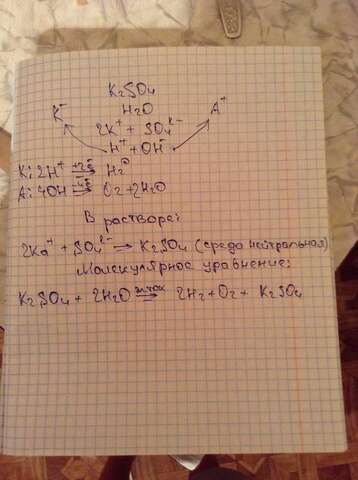 K₂SO₄
H₂O
K⁻ A⁺
2K⁺ + SO₄²⁻
H⁺ + OH⁻
K: 2H⁺ +2ē→ H₂⁰
A: 4OH⁻ -4ē→ O₂ + 2H₂O
В растворе:
2Ka⁺ + SO₄²⁻ → K₂SO₄ (среда нейтральная)
Молекулярное уравнение:
K₂SO₄ + 2H₂O эл.ток→ 2H₂ + O₂ + K₂SO₄